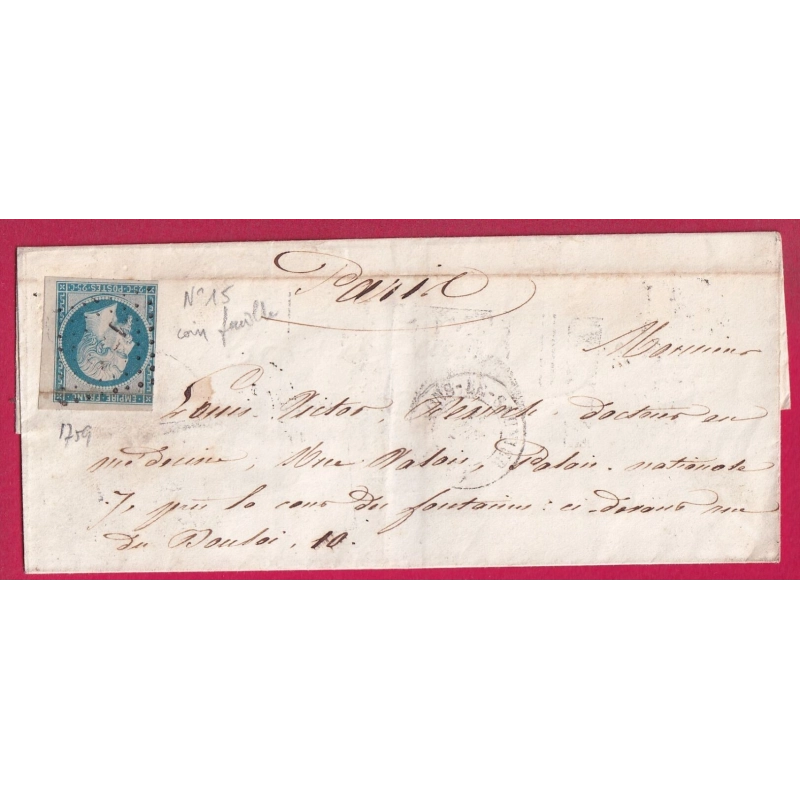 Paris
25 c POSTES 25 c
EMPIRE FRANC
N° 15
coin feuille
1709
Monsieur
Louis Victor, docteur en
médecine, Rue Valois, Palais-nationale
7, près la cour des fontaines: ci-devant rue
du Bouloi, 10.